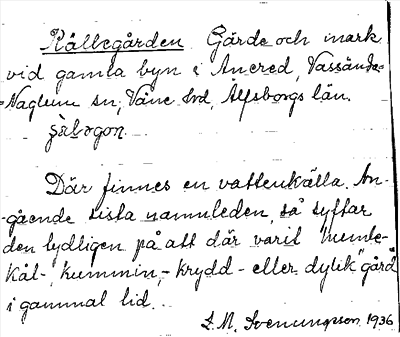 Källegården. Gärde och mark
vid gamla byn i Anered, Vassända=
=Naglum sn, Väne hd, Älfsborgs län.
Där finnes en vattenkälla. An-
gående sista namnleden, så syftar
den tydligen på att där varit "humle-
kål-, kummin,- krydd- eller dylik" gård
i gammal tid.
S. M. Svenungsson 1936